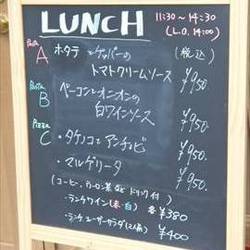 LUNCH 11:30〜14:30
(L.O. 14:00)
Pasta (税込)
A ホタテとケッパーの
トマトクリームソース ¥950.
Pasta
B ベーコンとオニオンの
白ワインソース ¥950.
Pizza
C ・タケノコとアンチョビ ¥950.
・マルゲリータ ¥950.
(コーヒー、ウーロン茶などドリンク付)
・ランチワイン(赤・白) 各¥380
・ランチ サラダ(2人前) ¥400